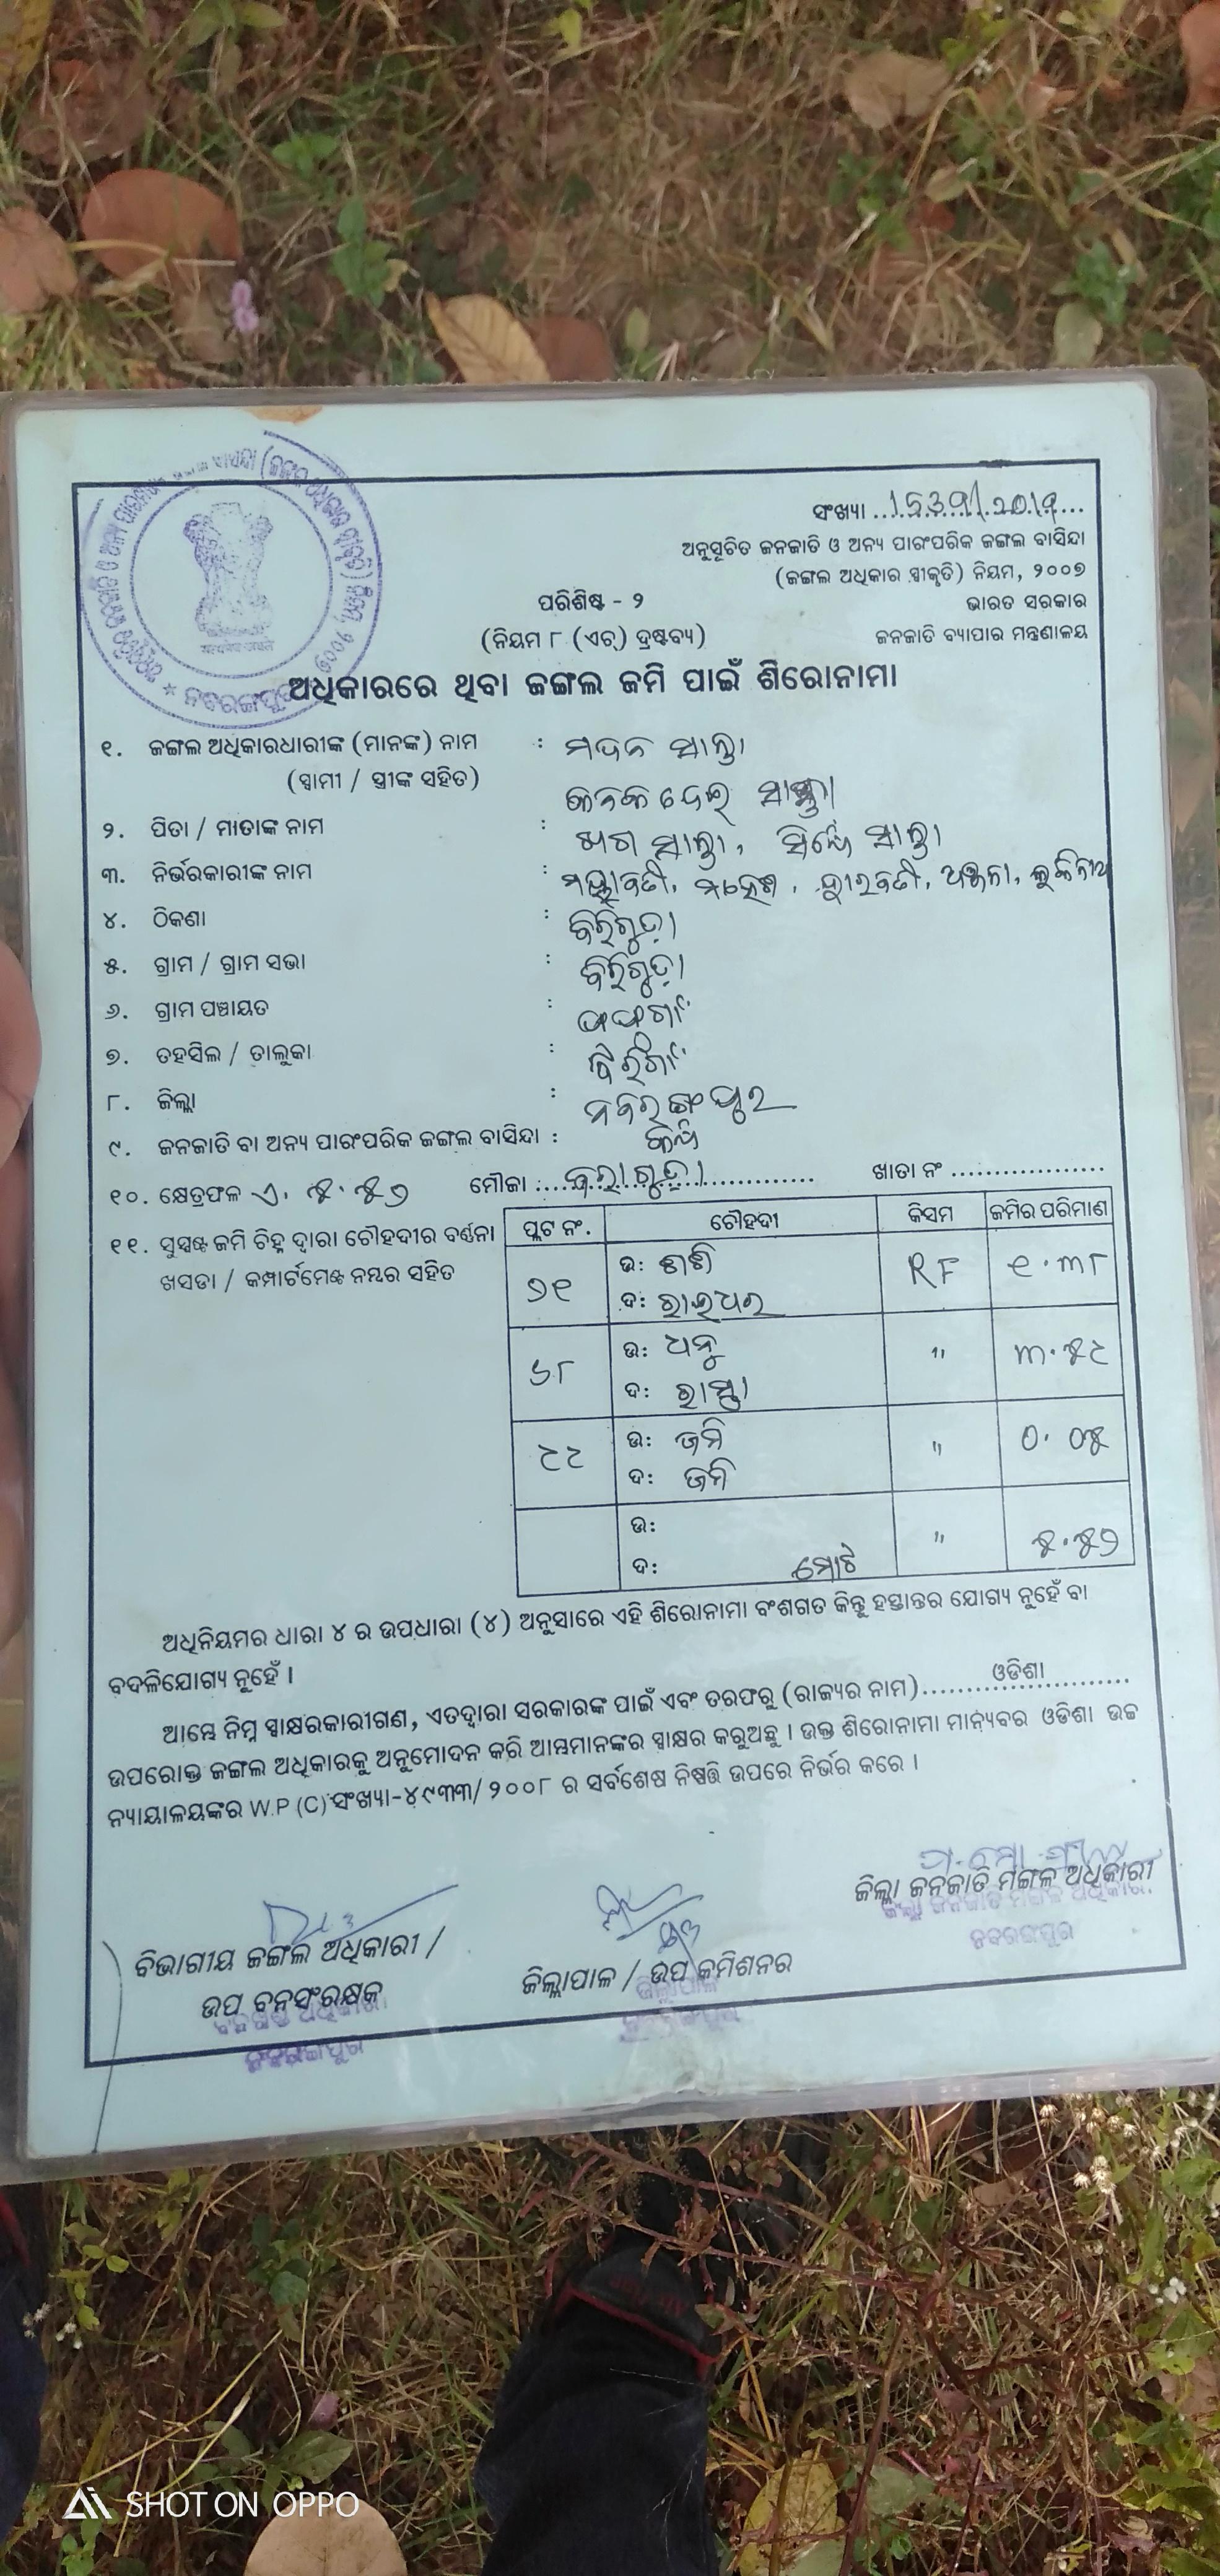 ସଂଖ୍ୟା
ଅନୁସୂଚିତ ଜନଜାତି ଓ ଅନ୍ୟ ପାରଂପରିକ ଜଙ୍ଗଲ ବାସିନ୍ଦା
(ଜଙ୍ଗଲ ଅଧିକାର ସ୍ୱୀକୃତି) ନିୟମ, ୨୦୦୭
ପରିଶିଷ୍ଟ - ୨
ଭାରତ ସରକାର
(ନିୟମ ୮ (ଏଚ୍) ଦ୍ରଷ୍ଟବ୍ୟ)
ଜନଜାତି ବ୍ୟାପାର ମନ୍ତ୍ରଣାଳୟ
ଅଧିକାରରେ ଥିବା ଜଙ୍ଗଲ ଜମି ପାଇଁ ଶିରୋନାମା
୧. ଜଙ୍ଗଲ ଅଧିକାରଧାରୀଙ୍କ (ମାନଙ୍କ) ନାମ : ମଦନ ସାନ୍ତା
(ସ୍ୱାମୀ / ସ୍ତ୍ରୀଙ୍କ ସହିତ) କନକ ଦେଇ ସାନ୍ତା
୨. ପିତା / ମାତାଙ୍କ ନାମ : ସାନ୍ତା, ସାନ୍ତା
୩. ନିର୍ଭରକାରୀଙ୍କ ନାମ : ମହେଶ,
୪. ଠିକଣା : ବିରିଗୁଡ଼ା
୫. ଗ୍ରାମ / ଗ୍ରାମ ସଭା : ବିରିଗୁଡ଼ା
୬. ଗ୍ରାମ ପଞ୍ଚାୟତ :
୭. ତହସିଲ / ତାଲୁକା :
୮. ଜିଲ୍ଲା : ନବରଙ୍ଗପୁର
୯. ଜନଜାତି ବା ଅନ୍ୟ ପାରଂପରିକ ଜଙ୍ଗଲ ବାସିନ୍ଦା :
୧୦. କ୍ଷେତ୍ରଫଳ ଏ. ୫.୫୭ ମୌଜା : ଖାତା ନଂ
୧୧. ସୁସ୍ପଷ୍ଟ ଜମି ଚିହ୍ନ ଦ୍ୱାରା ଚୌହଦୀର ବର୍ଣ୍ଣନା
ଖସଡା / କମ୍ପାର୍ଟମେଣ୍ଟ ନମ୍ବର ସହିତ
ପ୍ଲଟ ନଂ. ଚୌହଦୀ କିସମ ଜମିର ପରିମାଣ
୭୧ ଉ: ଶଶି RF ୧.୩୮
ଦ: ରାଇଧର
୬୮ ଉ: ଧନୁ " ୩.୫୪
ଦ: ରାସ୍ତା
ଉ: ଜମି " ୦.୦୫
ଦ: ଜମି
ଉ: " ୫.୫୭
ଦ: ମୋଟ
ଅଧିନିୟମର ଧାରା ୪ ର ଉପଧାରା (୪) ଅନୁସାରେ ଏହି ଶିରୋନାମା ବଂଶଗତ କିନ୍ତୁ ହସ୍ତାନ୍ତର ଯୋଗ୍ୟ ନୁହେଁ ବା
ବଦଳିଯୋଗ୍ୟ ନୁହେଁ ।
ଆମ୍ଭେ ନିମ୍ନ ସ୍ୱାକ୍ଷରକାରୀଗଣ, ଏତଦ୍ୱାରା ସରକାରଙ୍କ ପାଇଁ ଏବଂ ତରଫରୁ (ରାଜ୍ୟର ନାମ) ଓଡିଶା
ଉପରୋକ୍ତ ଜଙ୍ଗଲ ଅଧିକାରକୁ ଅନୁମୋଦନ କରି ଆମ୍ଭମାନଙ୍କର ସ୍ୱାକ୍ଷର କରୁଅଛୁ । ଉକ୍ତ ଶିରୋନାମା ମାନ୍ୟବର ଓଡିଶା ଉଚ୍ଚ
ନ୍ୟାୟାଳୟଙ୍କର W.P (C) ସଂଖ୍ୟା-୪୯୩୩/୨୦୦୮ ର ସର୍ବଶେଷ ନିଷ୍ପତ୍ତି ଉପରେ ନିର୍ଭର କରେ ।
ଜିଲ୍ଲା ଜନଜାତି ମଙ୍ଗଳ ଅଧିକାରୀ
ନବରଙ୍ଗପୁର
ବିଭାଗୀୟ ଜଙ୍ଗଲ ଅଧିକାରୀ /
ଉପ ବନସଂରକ୍ଷକ
ଜିଲ୍ଲାପାଳ / ଉପ କମିଶନର
SHOT ON OPPO